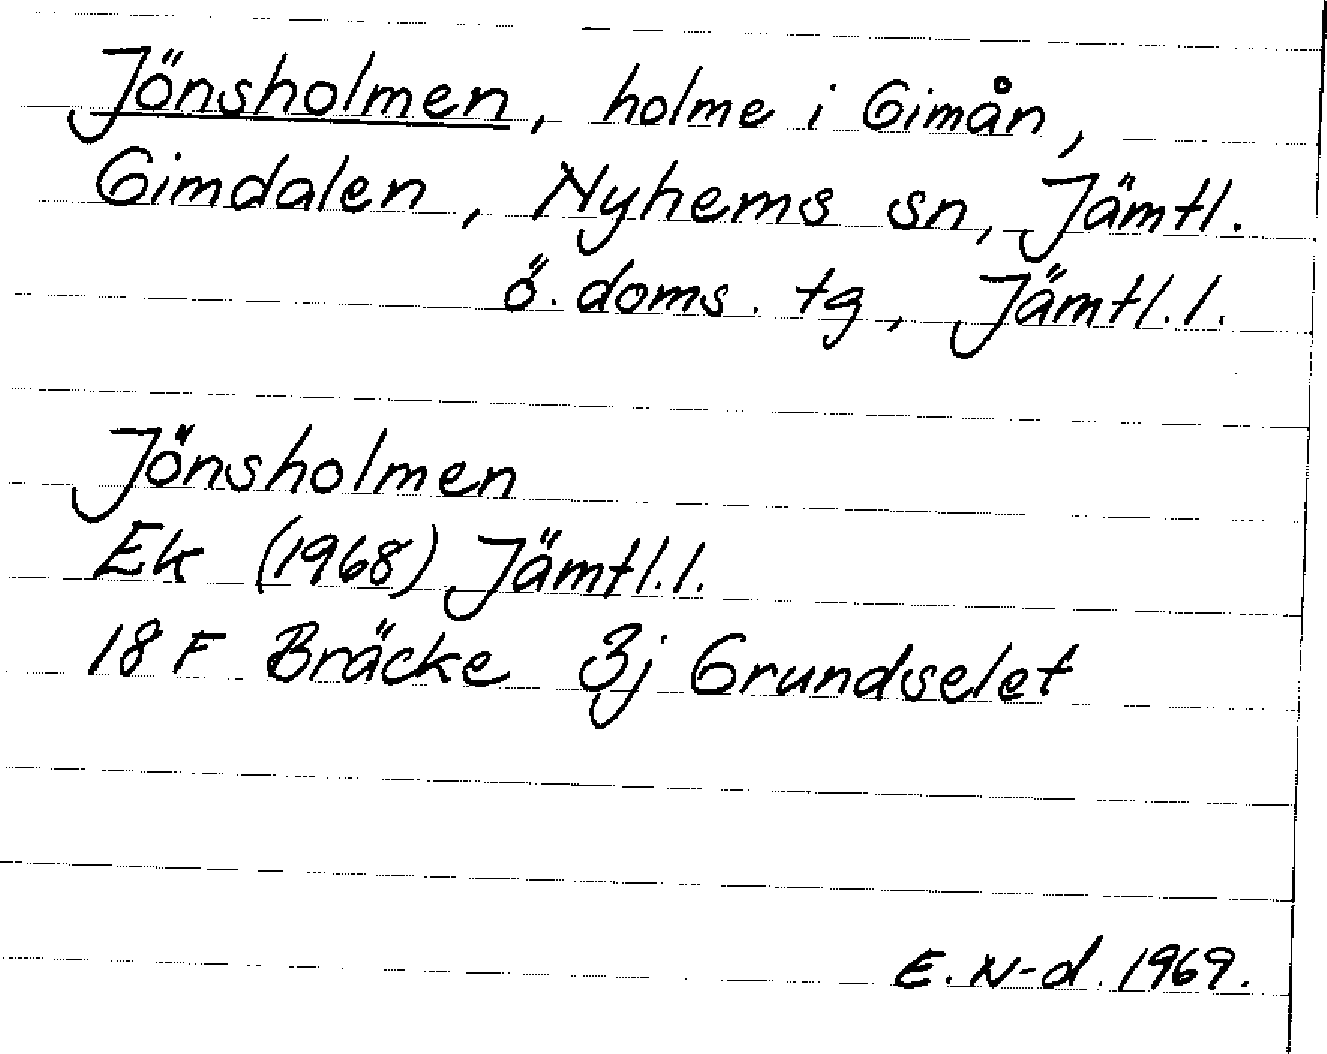 Jönsholmen, holme i Gimån,
Gimdalen, Nyhems sn, Jämtl.
ö. doms. tg, Jämtl. l.
Jönsholmen
Ek (1968) Jämtl. l.
18 F Bräcke 3j Grundselet
E. N-d. 1969.